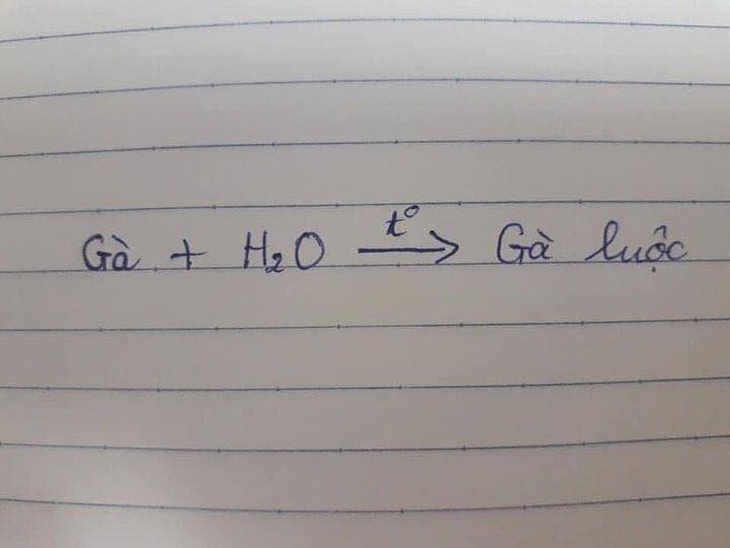 Gà + H₂O --t°--> Gà luộc